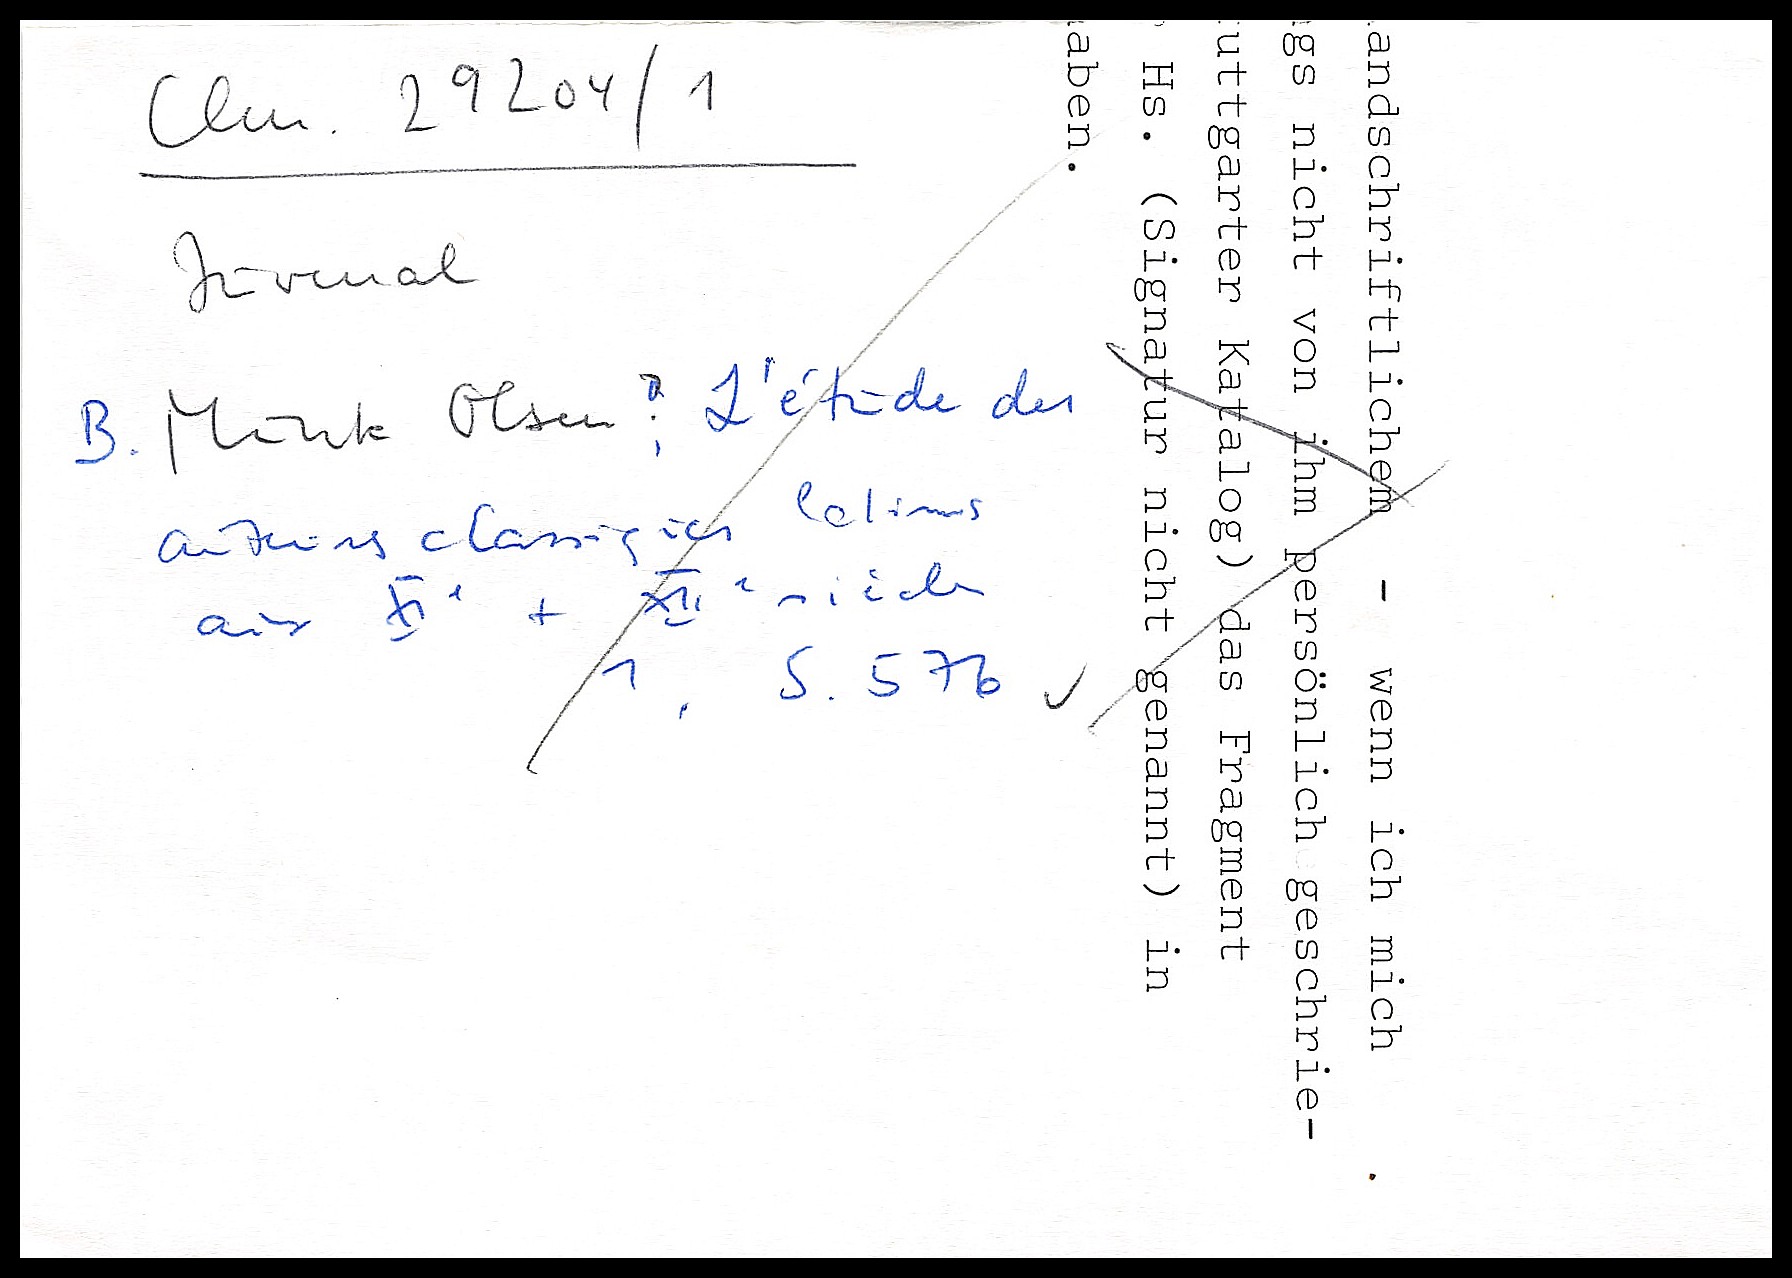 Clm. 29204/1
Juvenal
B. Munk Olsen?, L'étude des
auteurs classiques latins
aux XIe + XIIe siècles
1, S. 576 ✓
andschriftlichem - wenn ich mich
gs nicht von ihm persönlich geschrie-
uttgarter Katalog) das Fragment
Hs. (Signatur nicht genannt) in
aben.